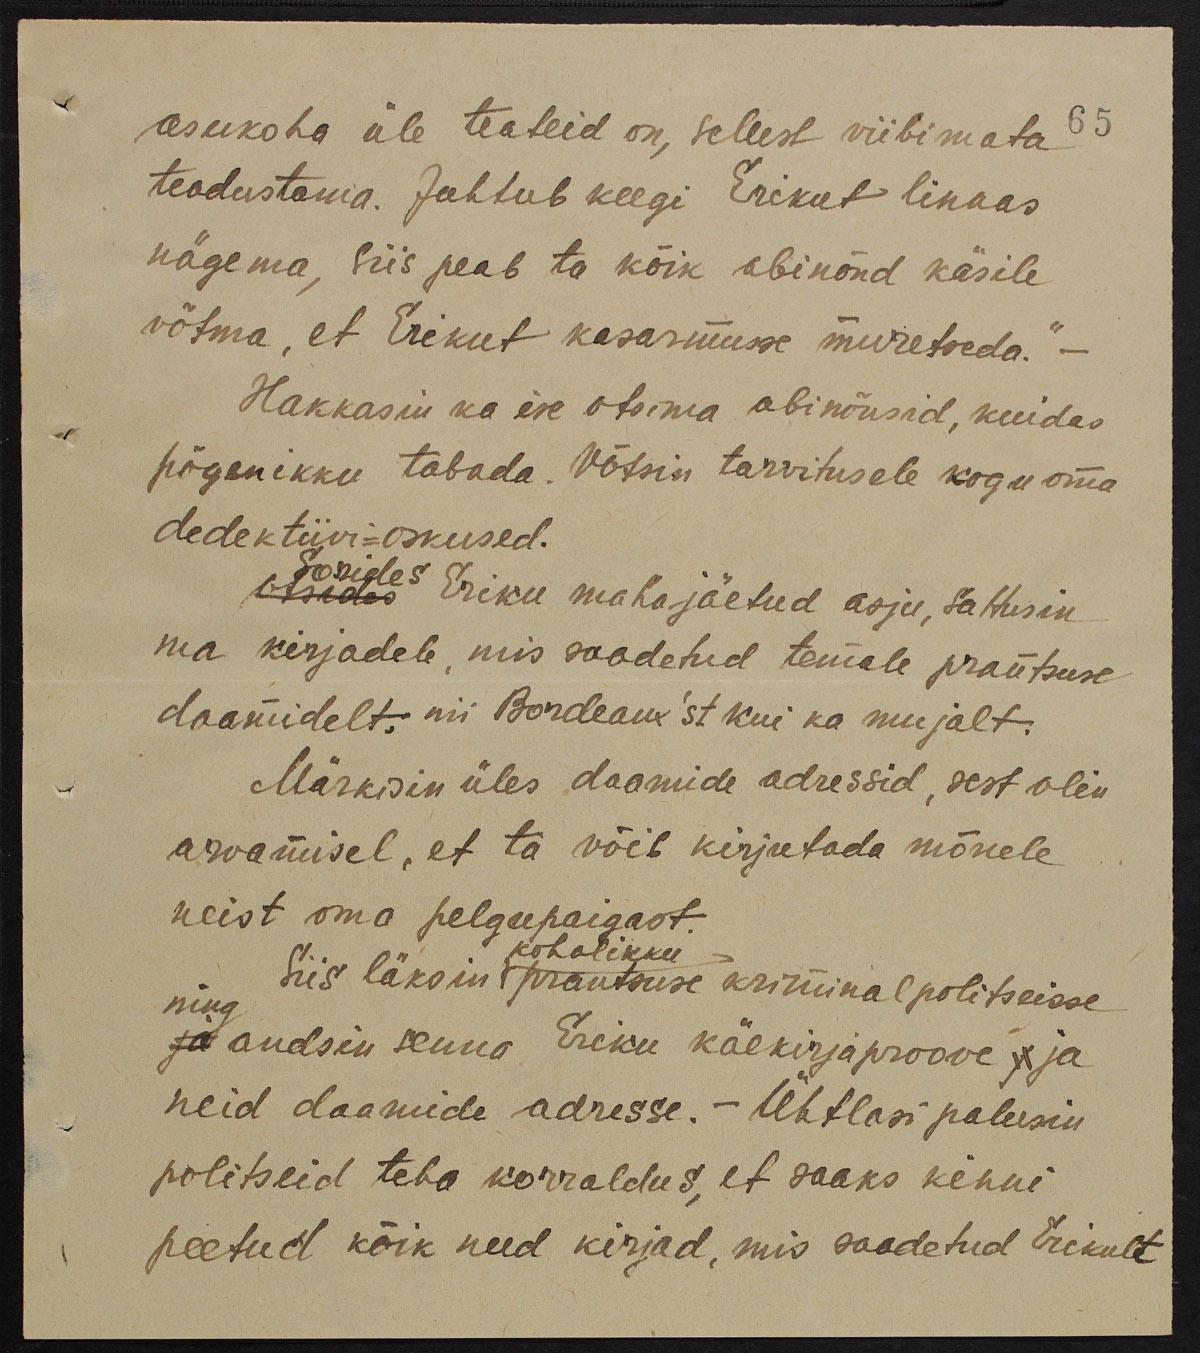 65
asukoha üle teateid on, sellest viibimata
teadustama. Juhtub keegi Erikut linnas
nägema, siis peab ta kõik abinõnd käsile
võtma, et Erikut kasarmusse muretseda." —
Hakkasin ka ise otsima abinõusid, kuidas
põgenikku tabada. Võtsin tarvitusele kogu oma
dedektiivi=oskused.
Sorides
otsides Eriku mahajäetud asju, sattusin
ma kirjadele, mis saadetud temale prantsuse
daamidelt, nii Bordeaux'st kui ka mujalt.
Märksin üles daamide adressid, sest olin
arvamisel, et ta võib kirjutada mõnele
neist oma pelgupaigast.
kohalikku
Siis läksin prantsuse kriminalpolitseisse
ning
ja andsin senna Eriku käekirjaproove ja
neid daamide adresse. — Ühtlasi palusin
politseid teha korraldus, et saaks kinni
peetud kõik need kirjad, mis saadetud Erikult